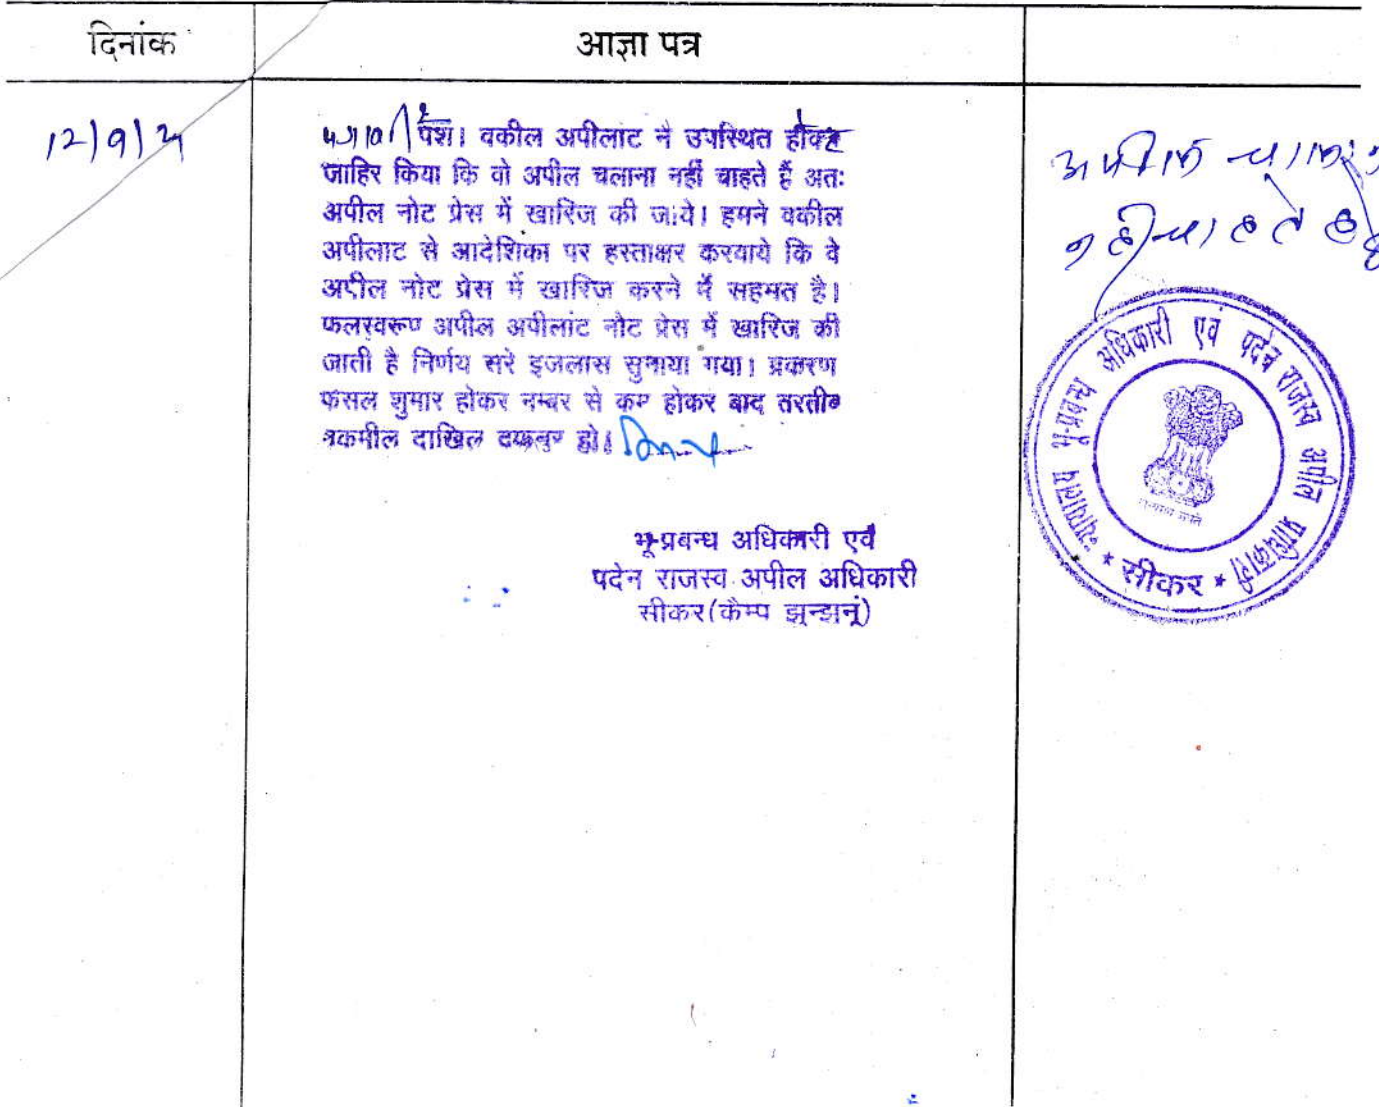 दिनांक
आज्ञा पत्र
12/9/24
पेश। वकील अपीलाट ने उपस्थित होकर
जाहिर किया कि वो अपील चलाना नहीं चाहते हैं अतः
अपील नोट प्रेस में खारिज की जावे। हमने वकील
अपीलाट से आदेशिका पर हस्ताक्षर करवाये कि वे
अपील नोट प्रेस में खारिज करने में सहमत है।
फलस्वरूप अपील अपीलांट नौट प्रेस में खारिज की
जाती है निर्णय सरे इजलास सुनाया गया। प्रकरण
फैसल शुमार होकर नम्बर से कम होकर बाद तरतीब
तकमील दाखिल दफ्तर हो।
भू-प्रबन्ध अधिकारी एवं
पदेन राजस्व अपील अधिकारी
सीकर(कैम्प झुन्झनूं)
अपील
नहीं चाहते है
न्यायालय भू-प्रबन्ध अधिकारी एवं पदेन राजस्व अपील प्राधिकारी
* सीकर *